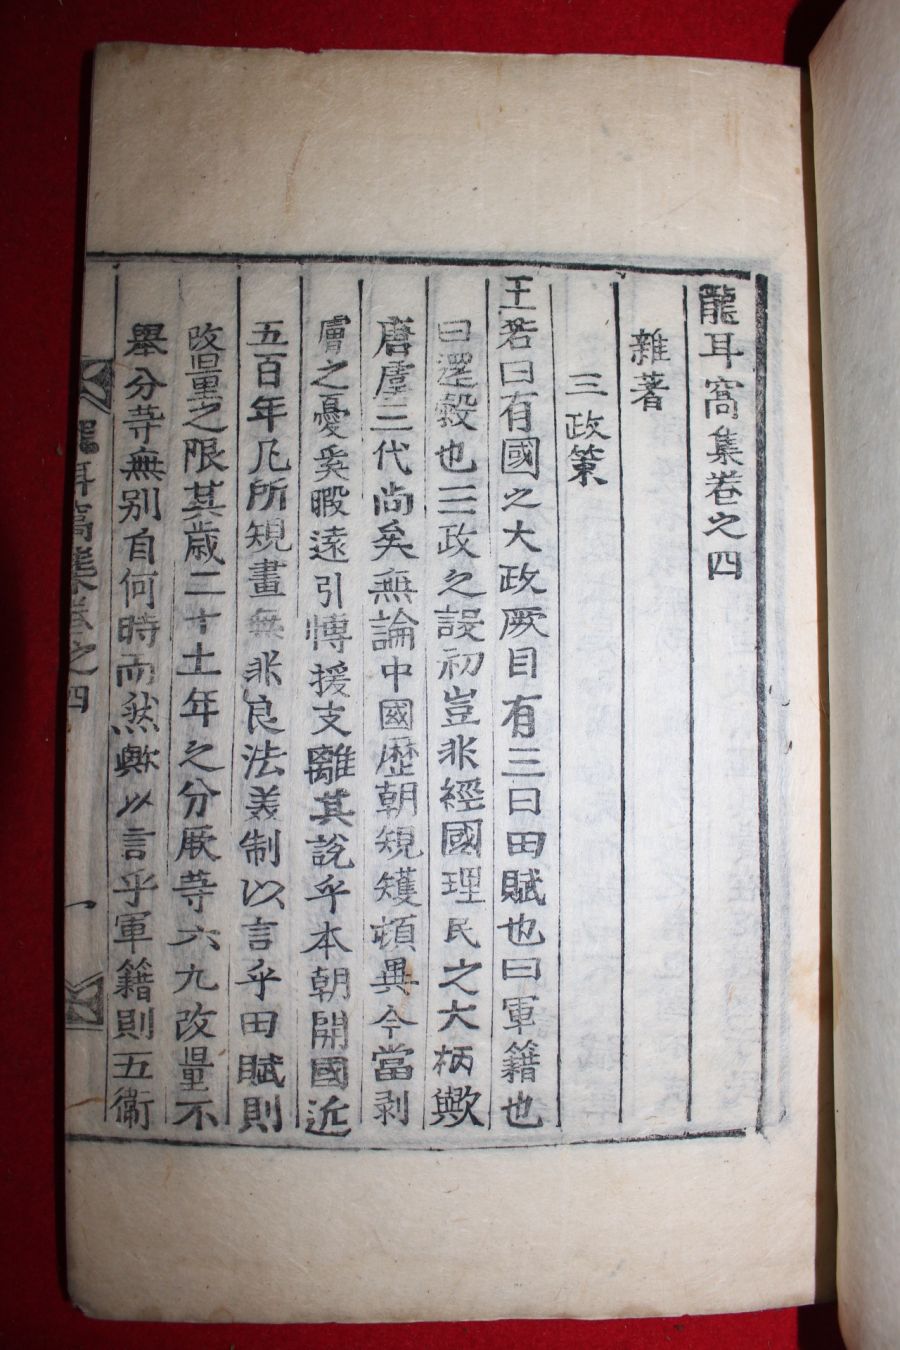 龍耳窩集卷之四
雜著
三政策
王若曰有國之大政厥目有三曰田賦也曰軍籍也
曰還穀也三政之設初豈非經國理民之大柄歟
唐虞三代尚矣無論中國歷朝規矱頓異今當剥
膚之憂奚暇遠引愽援支離其說乎本朝開國近
五百年凡所規畫無非良法美制以言乎田賦則
改量之限其歲二十土年之分厥等六九改量不
舉分等無別自何時而然歟以言乎軍籍則五衛
龍耳窩集卷之四 一